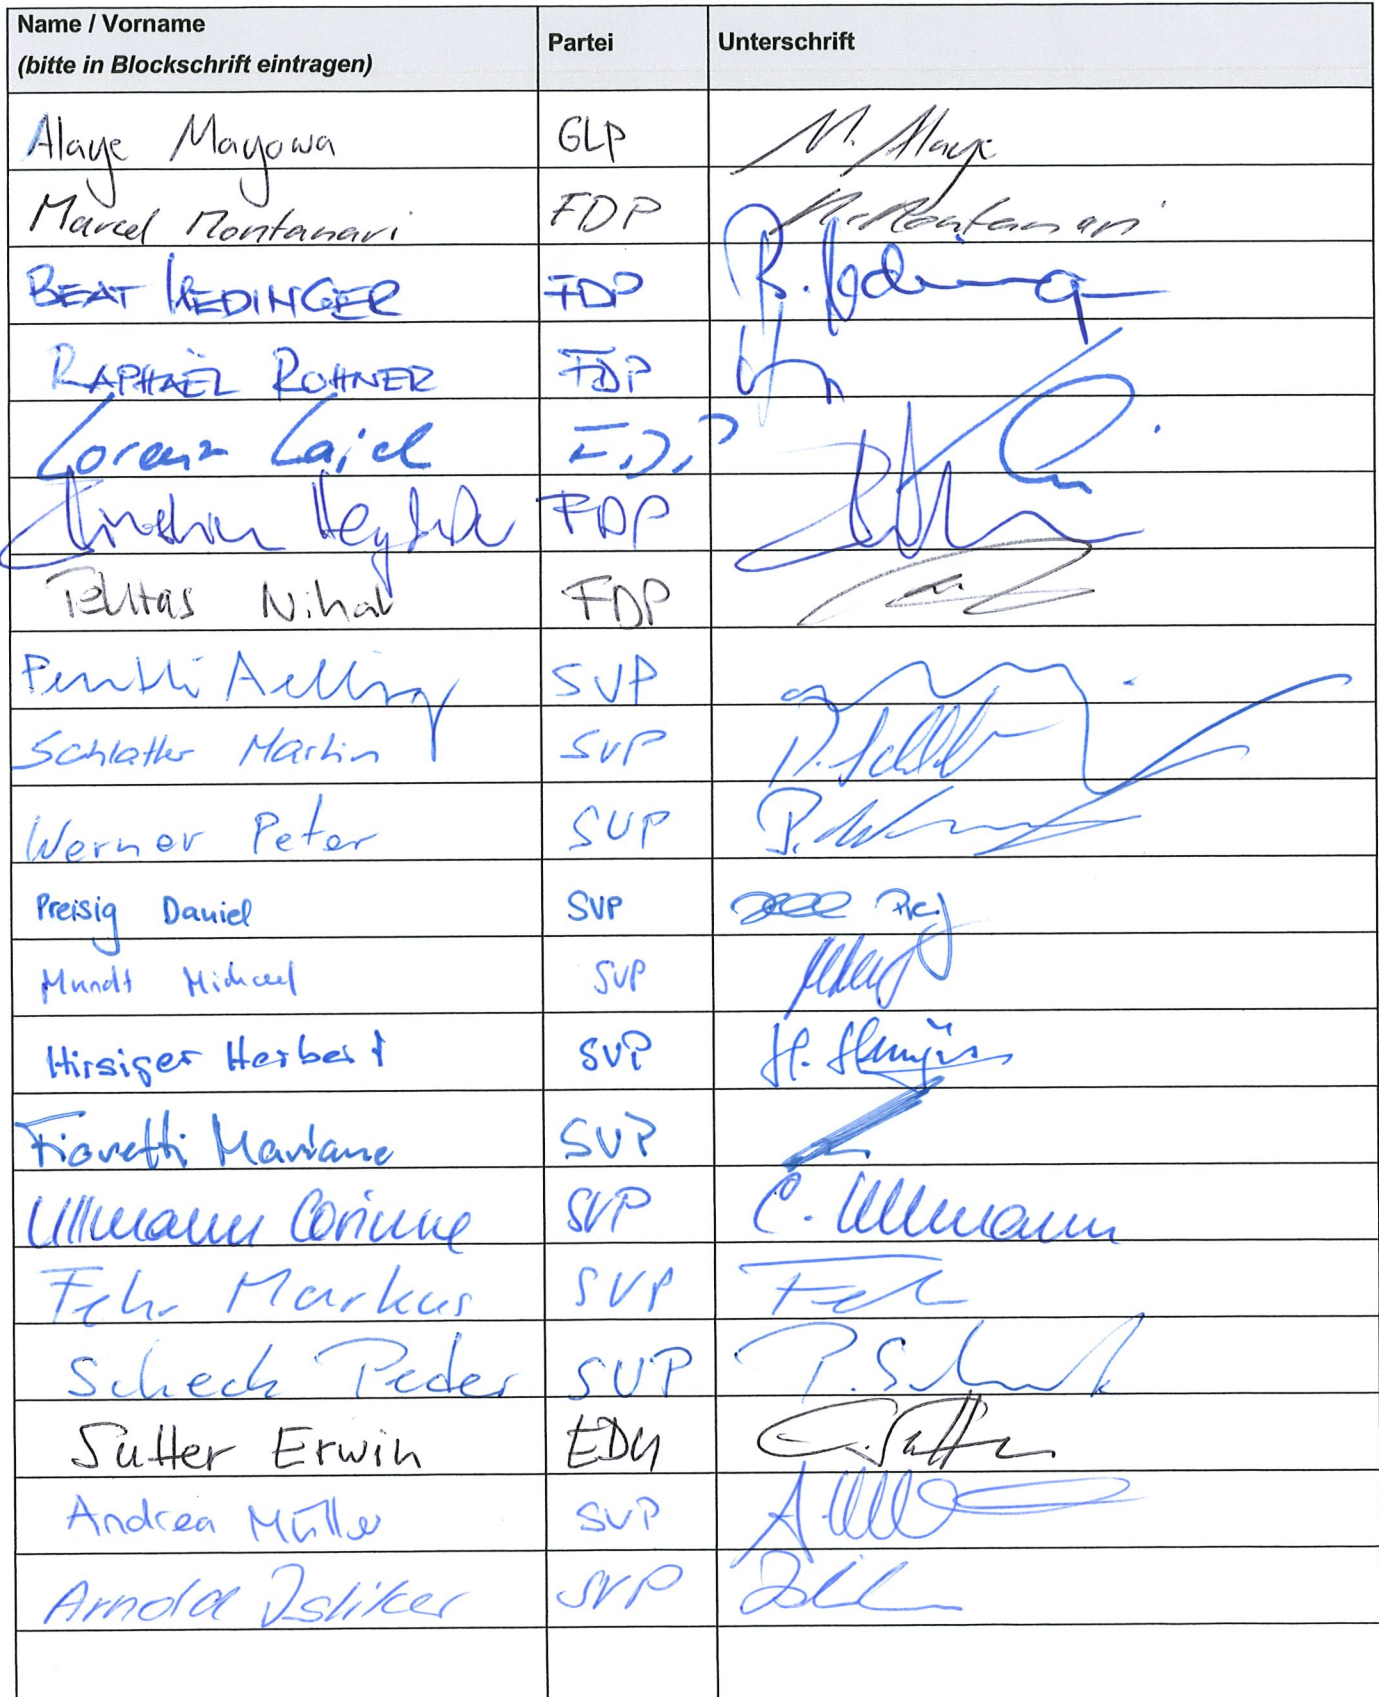 Name / Vorname
(bitte in Blockschrift eintragen)
Partei Unterschrift
Alaye Mayowa GLP M. Alaye
Marcel Montanari FDP M. Montanari
BEAT HEDINGER FDP B. Hedinger
RAPHAËL ROHNER FDP
Lorenz Laich FDP
Christian Heydecker FDP
Tektas Nihat FDP
Pentti Aellig SVP
Schlatter Martin SVP
Werner Peter SVP P. Werner
Preisig Daniel SVP
Mundt Michael SVP
Hirsiger Herbert SVP H. Hirsiger
Fioretti Mariano SVP
Ullmann Corinne SVP C. Ullmann
Fehr Markus SVP Feh
Scheck Peter SVP P. Scheck
Sutter Erwin EDU E. Sutter
Andrea Müller SVP
Arnold Isliker SVP